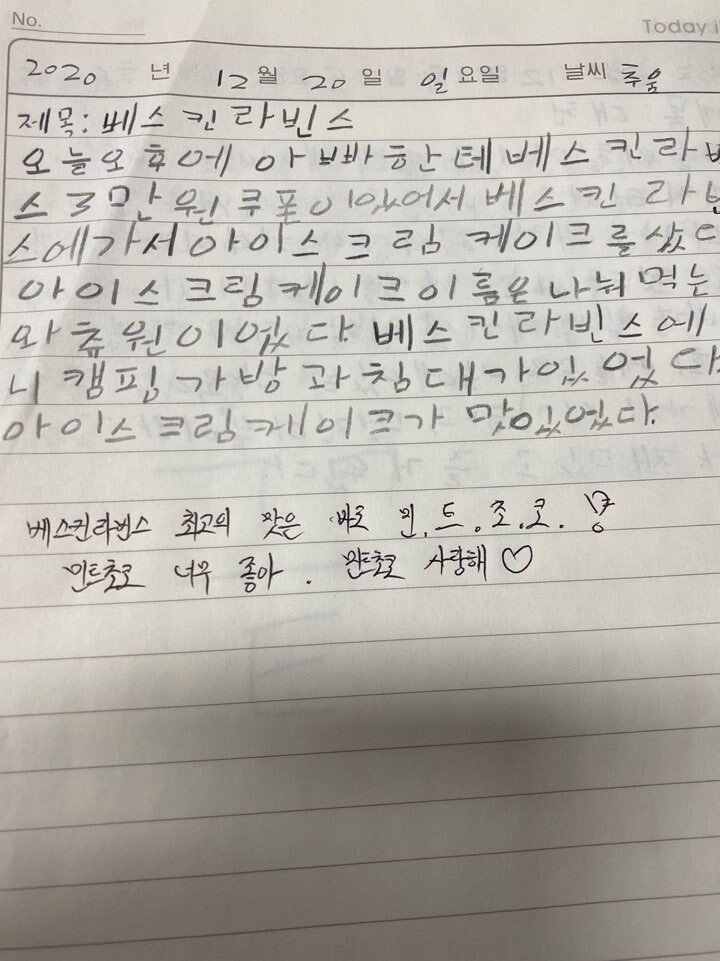 No.
Today i
2020 년 12 월 20 일 일 요일 날씨 추움
제목: 베스킨라빈스
오늘오후에 아빠한테베스킨라
스 3만원쿠폰이있어서 베스킨라빈
스에가서아이스크림 케이크를샀다
아이스크림케이크이름은나눠먹는
와츄원이었다. 베스킨라빈스에
니캠핑가방과침대가있었다.
아이스크림케이크가 맛있었다.
베스킨라빈스 최고의 맛은 바로 민.트.초.코. 맛!
민트초코 너무 좋아. 민트초코 사랑해 ♡